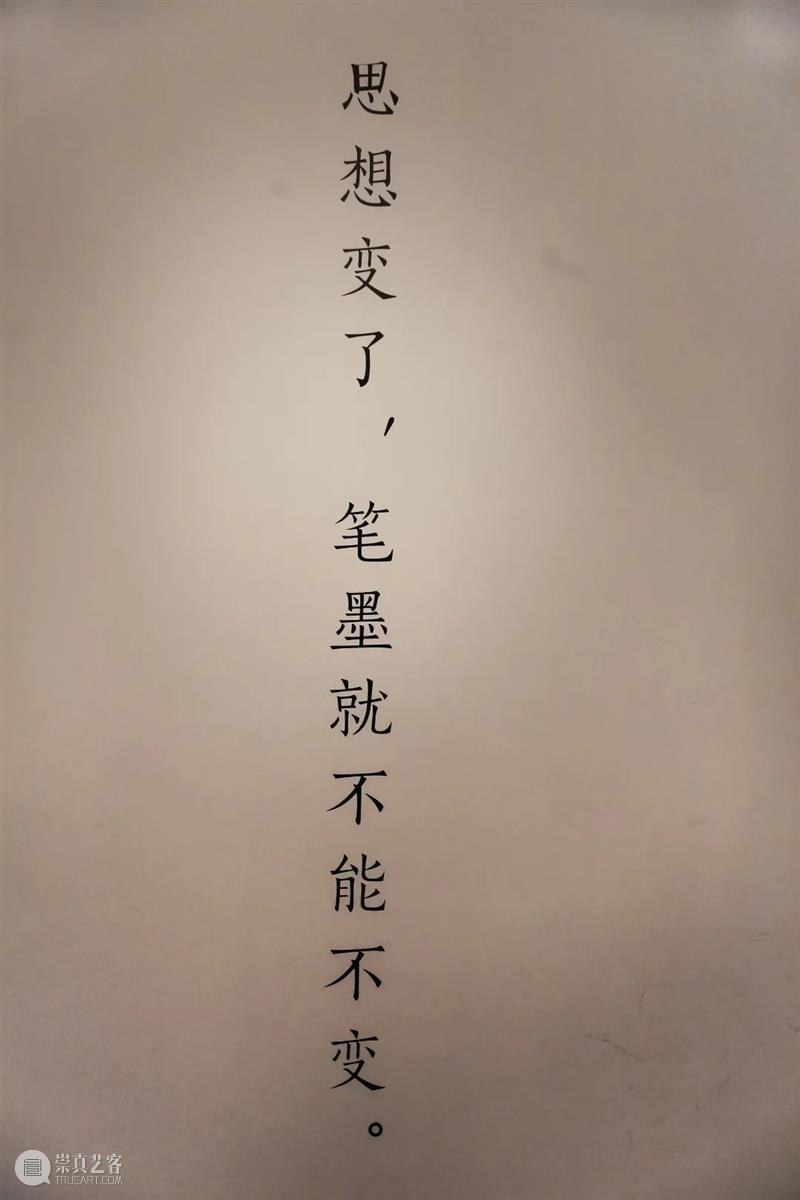 思想变了，笔墨就不能不变。
崇真艺客
WWW.TRUEART.COM